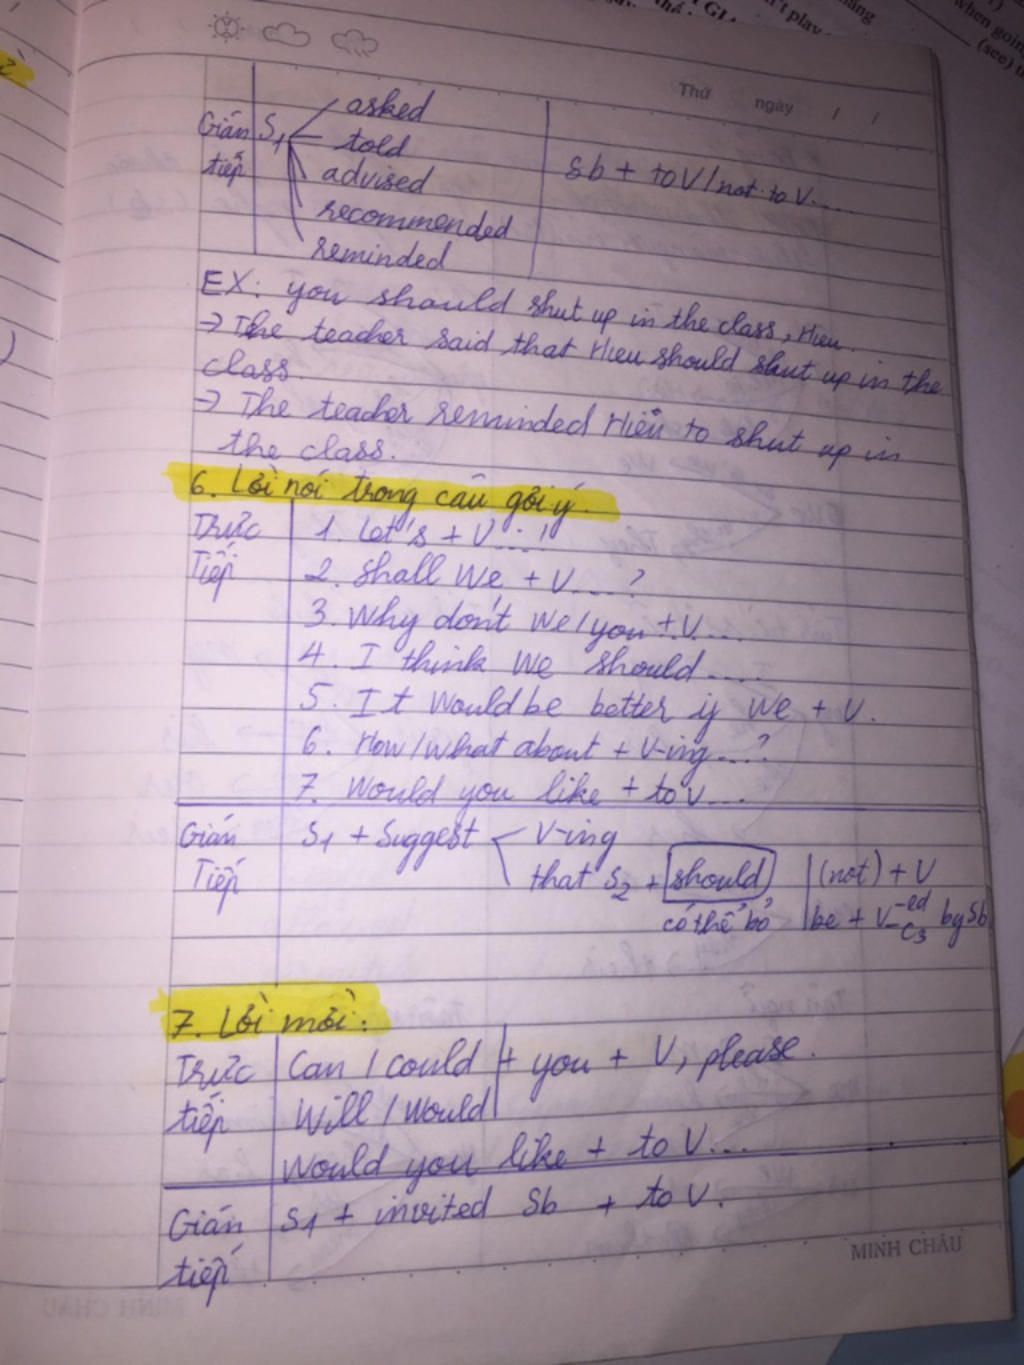 Thứ ngày / /
Gián S1 asked
tiếp told
advised
recommended
reminded
Sb + to V / not to V....
EX: you should shut up in the class, Hieu.
→ The teacher said that Hieu should shut up in the
class.
→ The teacher reminded Hiếu to shut up in
the class.
6. Lời nói trong câu gởi ý.
Trực 1. Let's + V....!
Tiếp 2. Shall we + V....?
3. Why don't we/you + V....
4. I think we should....
5. It would be better if we + V.
6. How/what about + V-ing....?
7. Would you like + to V....
Gián S1 + Suggest V-ing
Tiếp that S2 + should (not) + V
có thể bỏ be + V-ed C3 by Sb
7. Lời mời:
Trực Can / could + you + V, please.
tiếp Will / would
Would you like + to V....
Gián S1 + invited Sb + to V.
tiếp
MINH CHÂU
when going
(see)
't play
G1